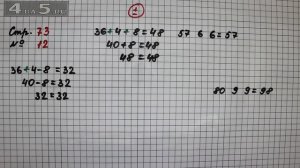 4a5.ru
1
Стр. 73
№ 12
36+4+8=48
40+8=48
48=48
57 6 6=57
36+4-8=32
40-8=32
32=32
80 9 9=98